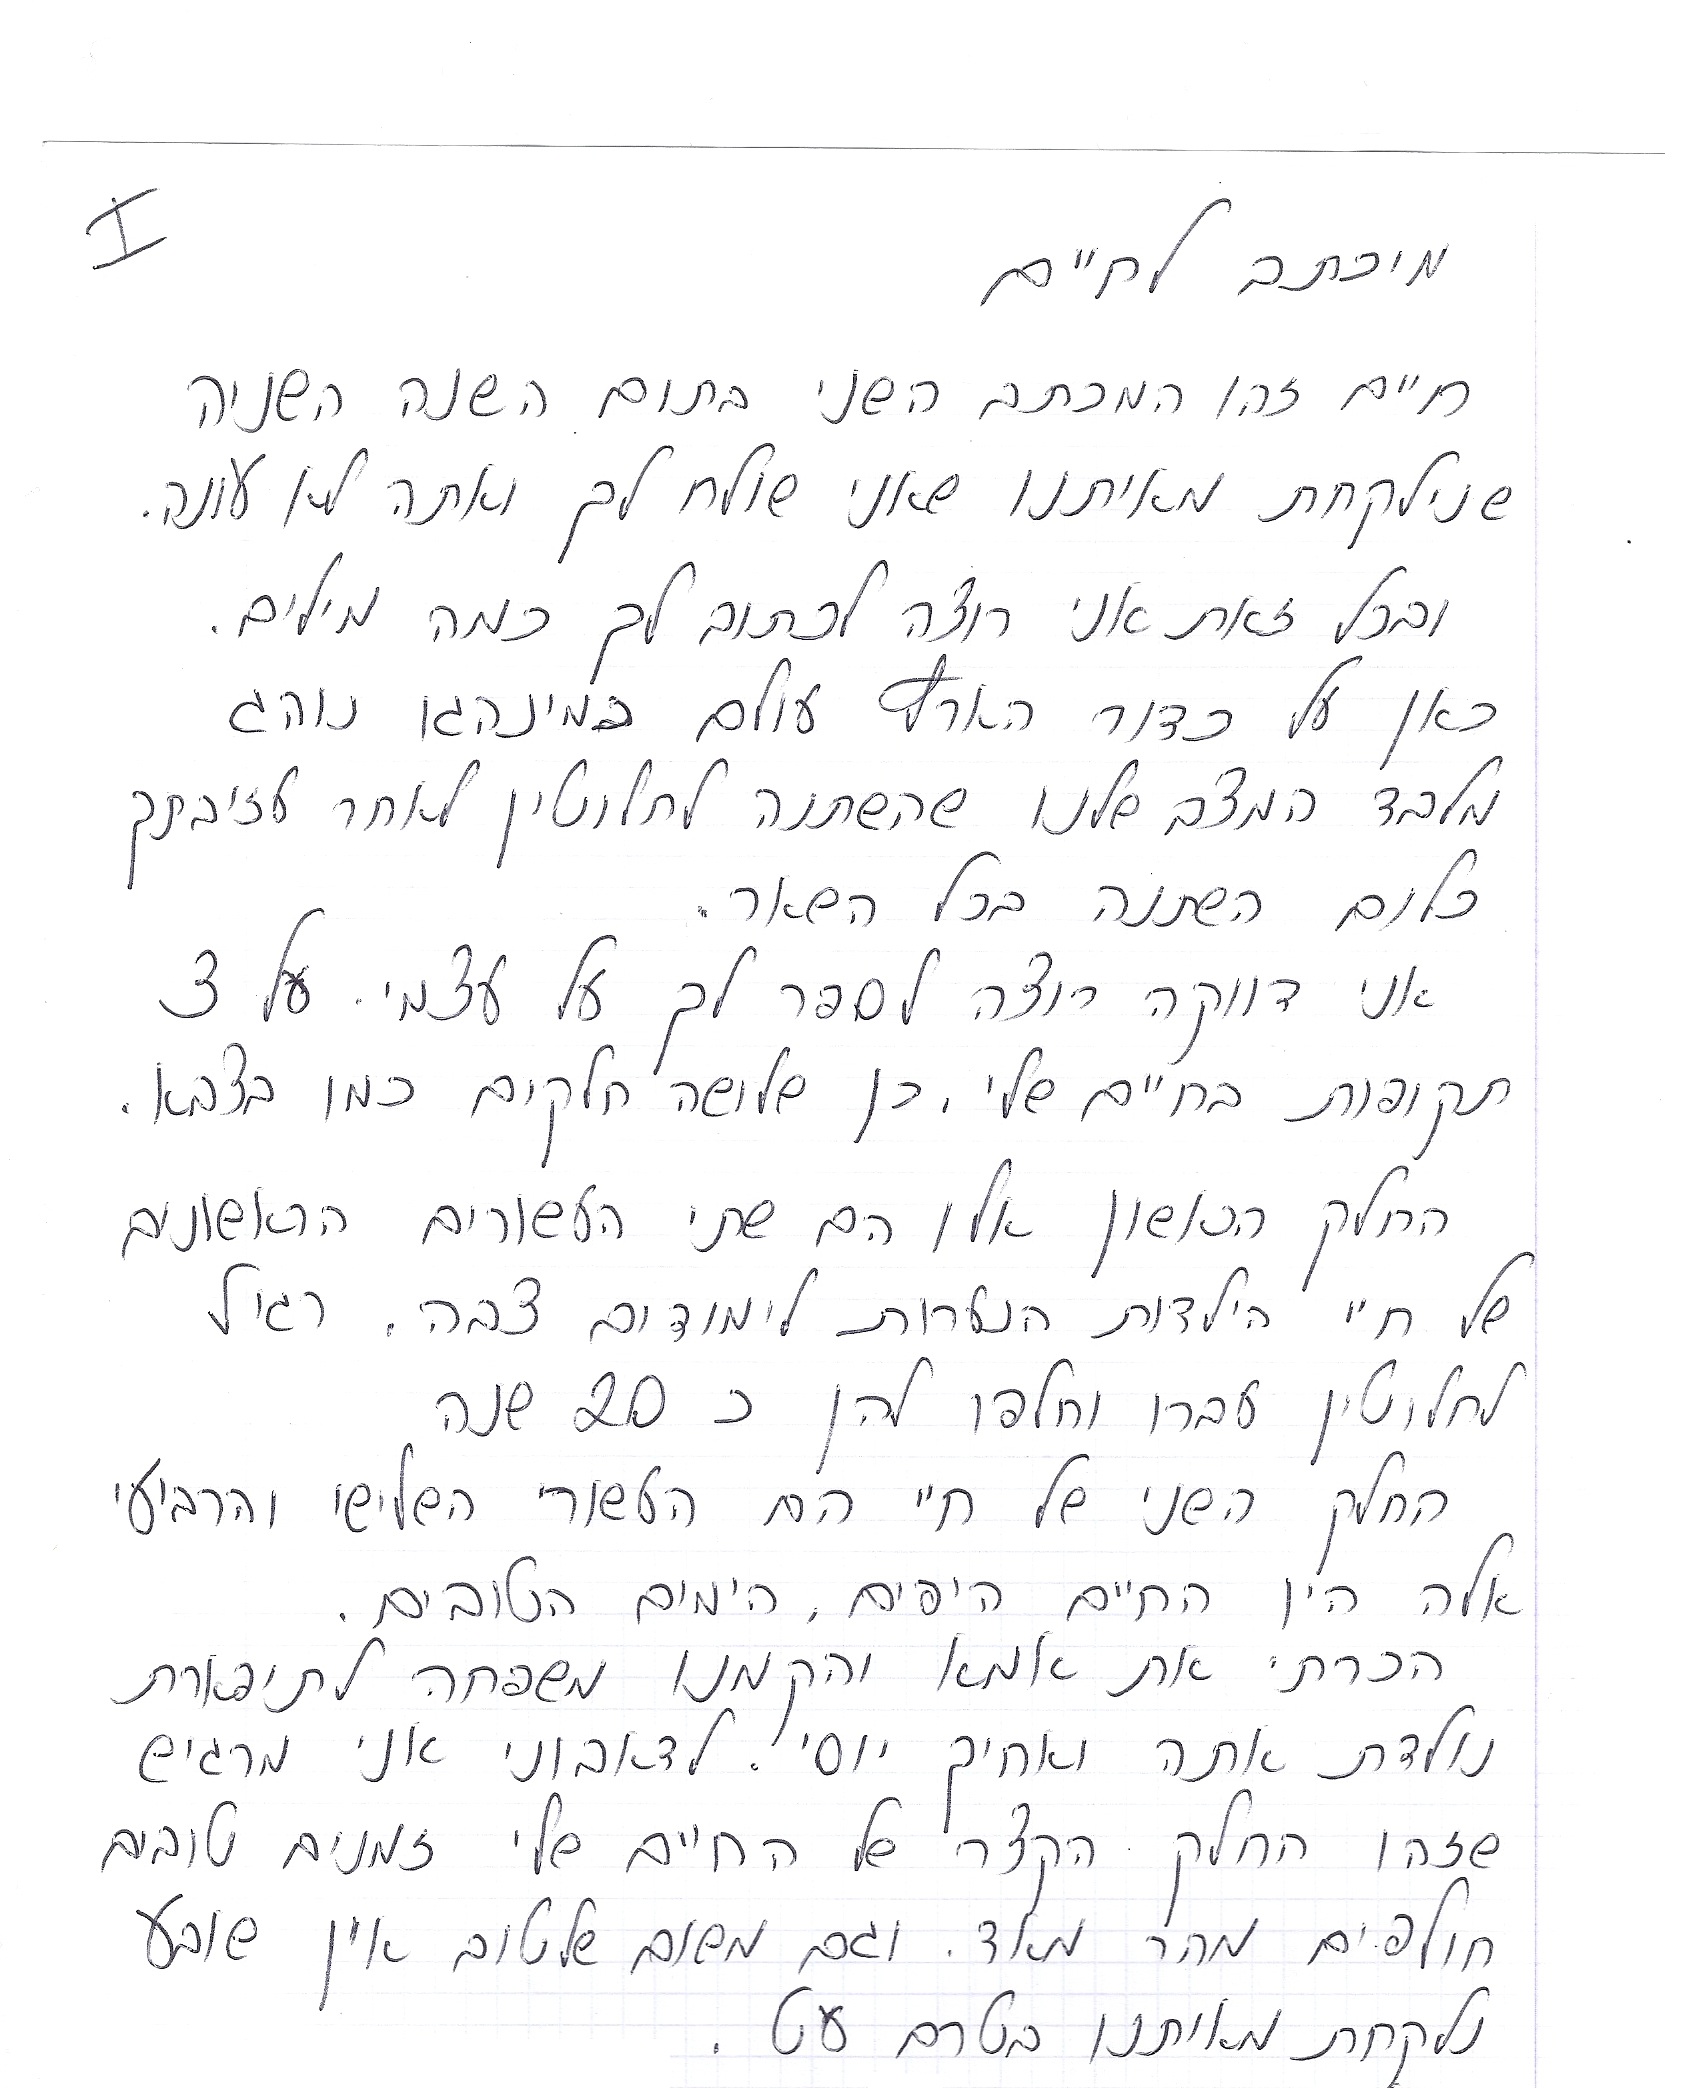 I
מיכתב לחיים
חיים זהו המכתב השני בתום השנה השניה
שנילקחת מאיתנו שאני שולח לך ואתה לא עונה.
ובכל זאת אני רוצה לכתוב לך כמה מילים.
כאן על כדור הארץ עולם כמינהגו נוהג
מלבד המצב שלנו שהשתנה לחלוטין לאחר עזיבתך
כלום השתנה בכל השאר.
אני דווקה רוצה לספר לך על עצמי. על 3
תקופות בחיים שלי, כן שלושה חלקים כמו בצבא.
החלק הראשון אלו הם שתי העשורים הראשונים
של חיי הילדות הנערות לימודים צבה. רגיל
לחלוטין עברו וחלפו להן כ 20 שנה
החלק השני של חיי הם העשורי השלישי והרביעי
אלה היו החיים היפים, הימים הטובים.
הכרתי את אמא והקמנו משפחה לתיפארת
נולדת אתה ואחיך יוסי. לדאבוני אני מרגיש
שזהו החלק הקצר של החיים שלי זמנים טובים
חולפים מהר מאוד. וגם משום שלטוב אין שובע
נלקחת מאיתנו בטרם עט.